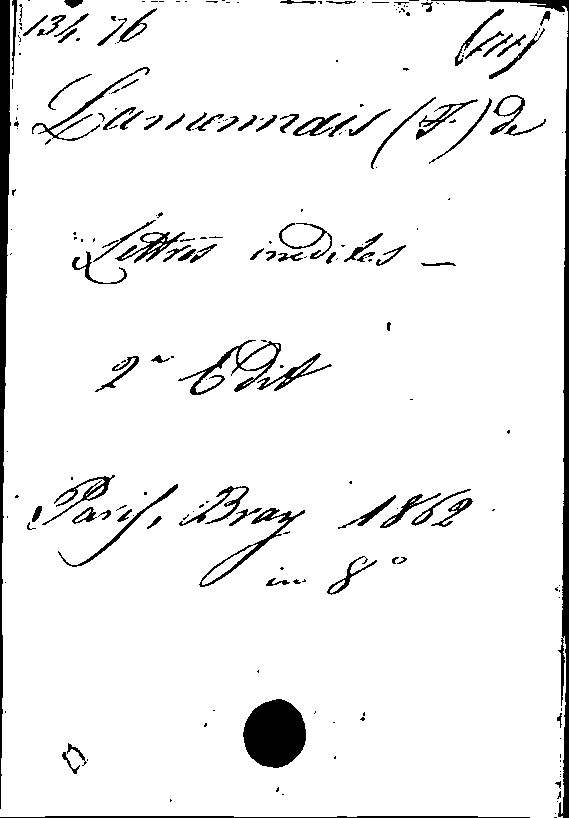 134. 76
Lamennais (F) de
Lettres inedites —
2ª Edit
Paris, Bray 1862
in 8°